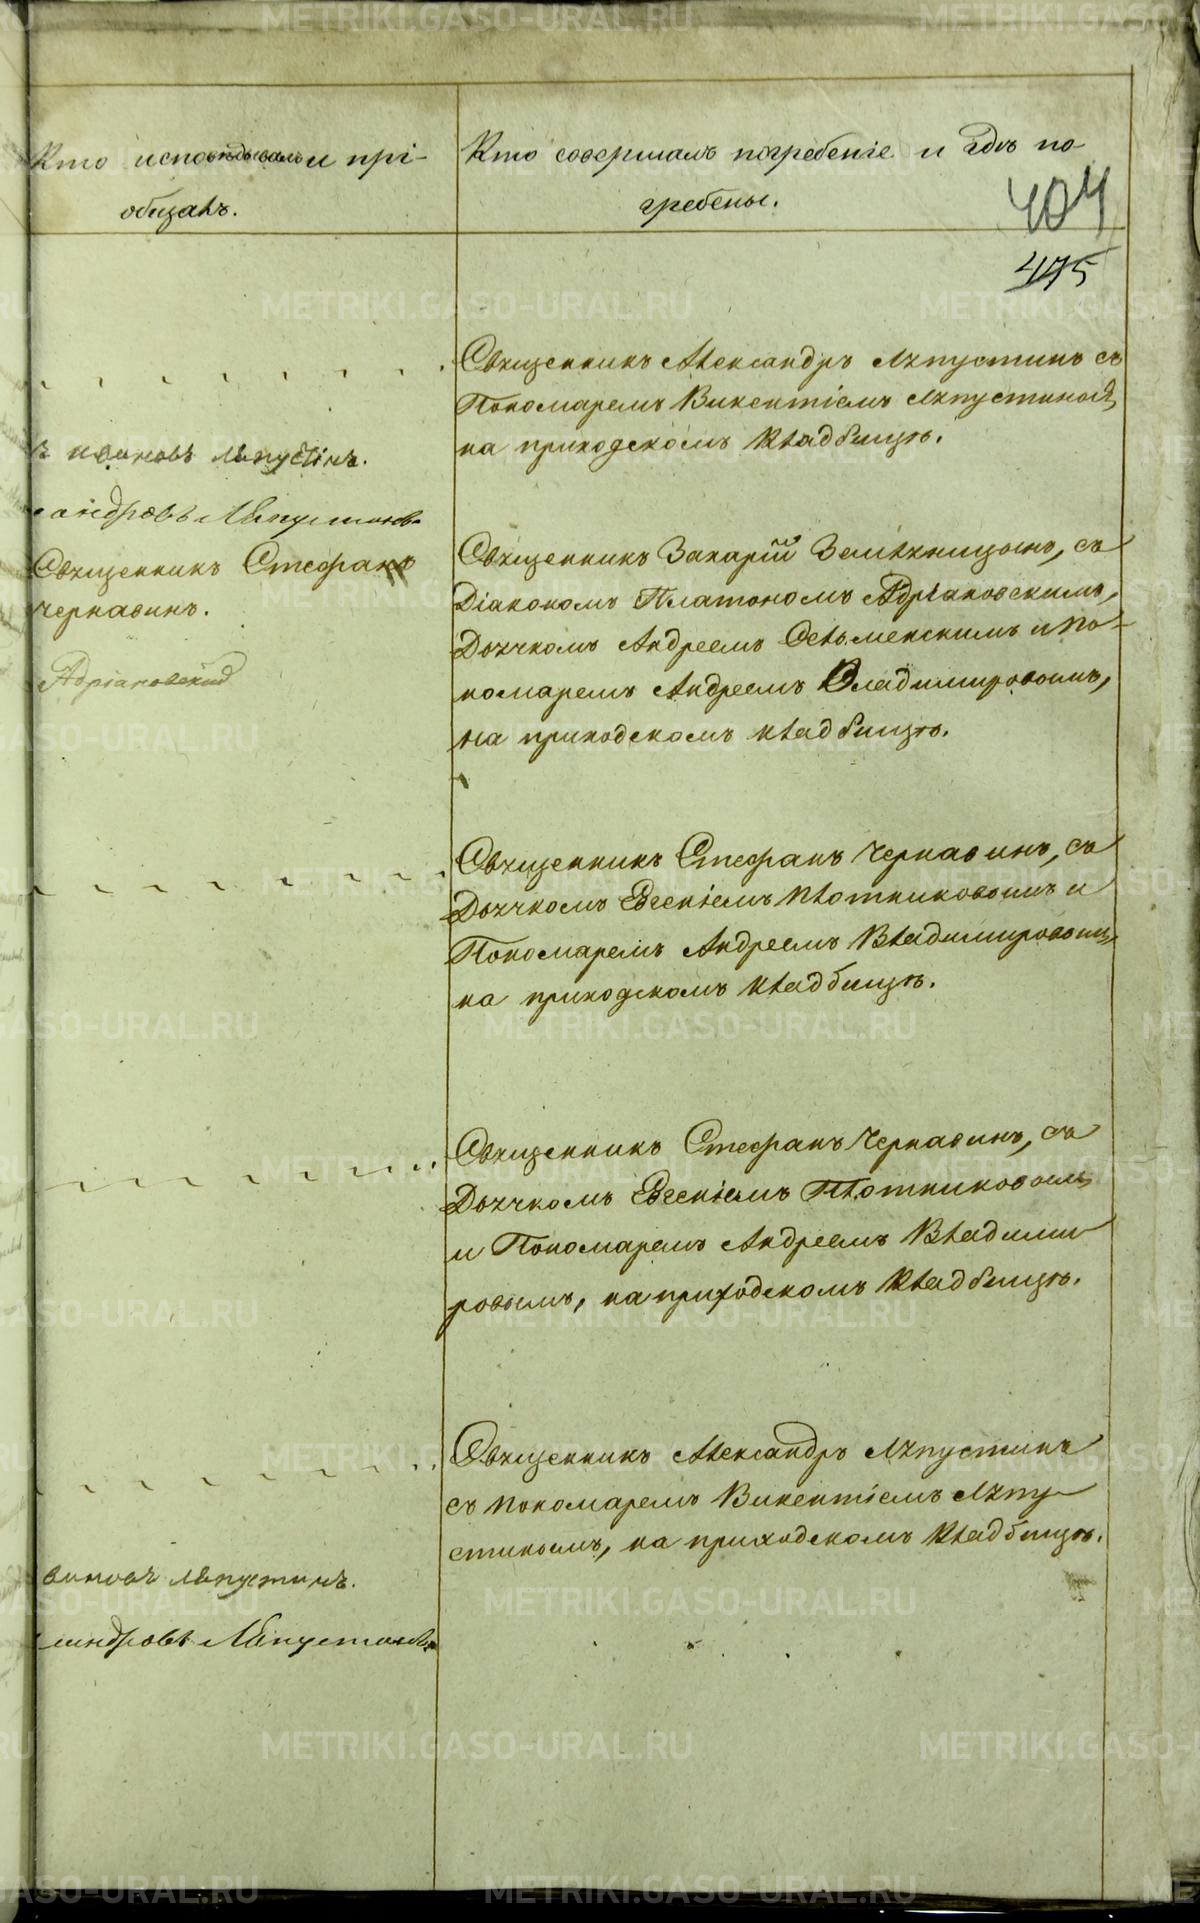 Кто исповѣдывалъ и прі-
общалъ.
Кто совершалъ погребеніе и гдѣ по-
гребены.
404
475
Священникъ Александръ Ляпустинъ съ
Пономаремъ Викентіемъ Ляпустинымъ,
на приходскомъ кладбищѣ.
Ляпустинъ.
Ляпустинъ
Священникъ Стефанъ
Чернавинъ.
Адріановскій
Священникъ Захарій Земляницынъ, съ
Діакономъ Платономъ Адріановскимъ,
Дьячкомъ Андреемъ Сельменскимъ и По-
номаремъ Андреемъ Владимировымъ,
на приходскомъ кладбищѣ.
Священникъ Стефанъ Чернавинъ, съ
Дьячкомъ Евгеніемъ Плотниковымъ и
Пономаремъ Андреемъ Владимировым,
на приходскомъ кладбищѣ.
Священникъ Стефанъ Чернавинъ, съ
Дьячкомъ Евгеніемъ Плотниковымъ
и Пономаремъ Андреемъ Владими
ровымъ, на приходскомъ кладбищѣ.
Священникъ Александръ Ляпустинъ
съ Пономаремъ Викентіемъ Ляпу
стинымъ, на приходскомъ кладбищѣ.
Ляпустинъ.
Ляпустинъ
METRIKI.GASO-URAL.RU